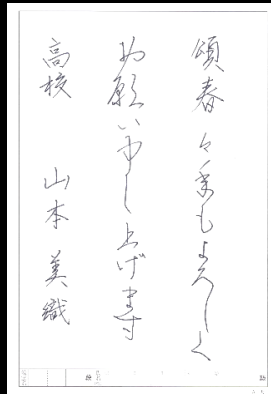 頌春 今年もよろしく
お願い申し上げます
高校 山本 美織